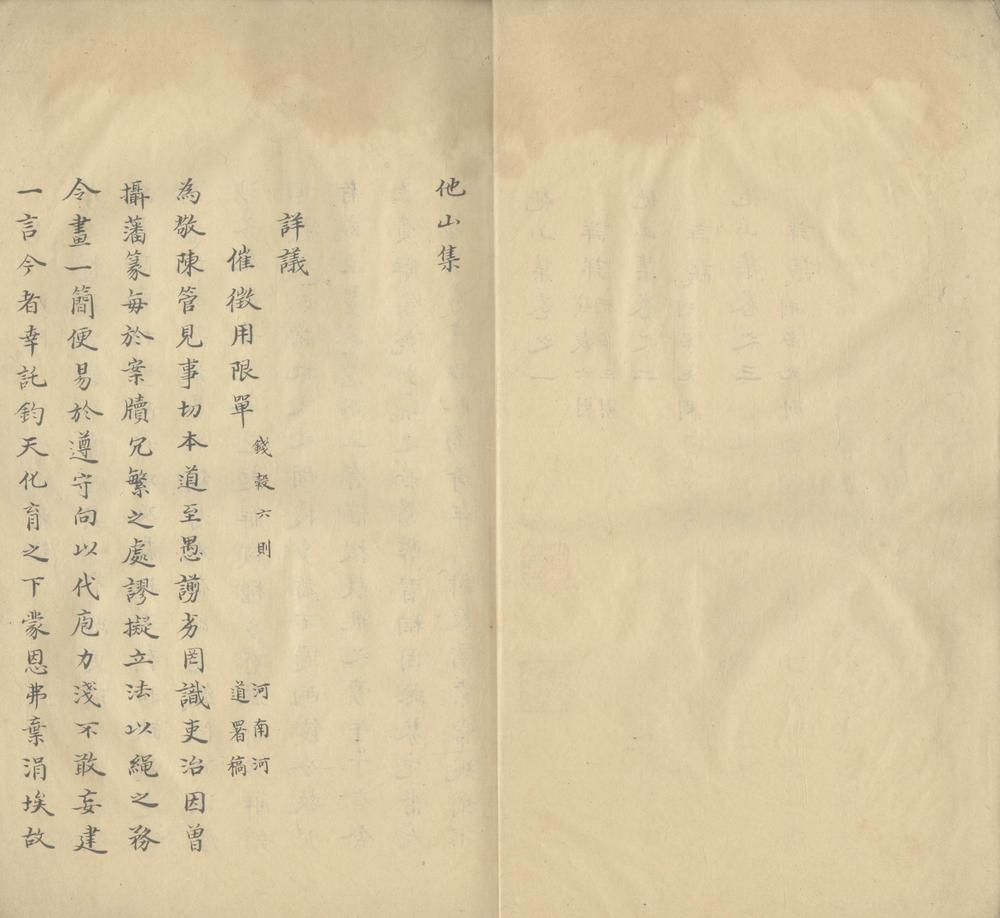 他山集
詳議
催徵用限單 錢穀六則 河南河道署稿
為敬陳管見事切本道至愚謭劣罔識吏治因曾
攝藩篆每於案牘冗繁之處謬擬立法以繩之務
令畫一簡便易於遵守向以代庖力淺不敢妄建
一言今者幸託鈞天化育之下蒙恩弗棄涓埃故